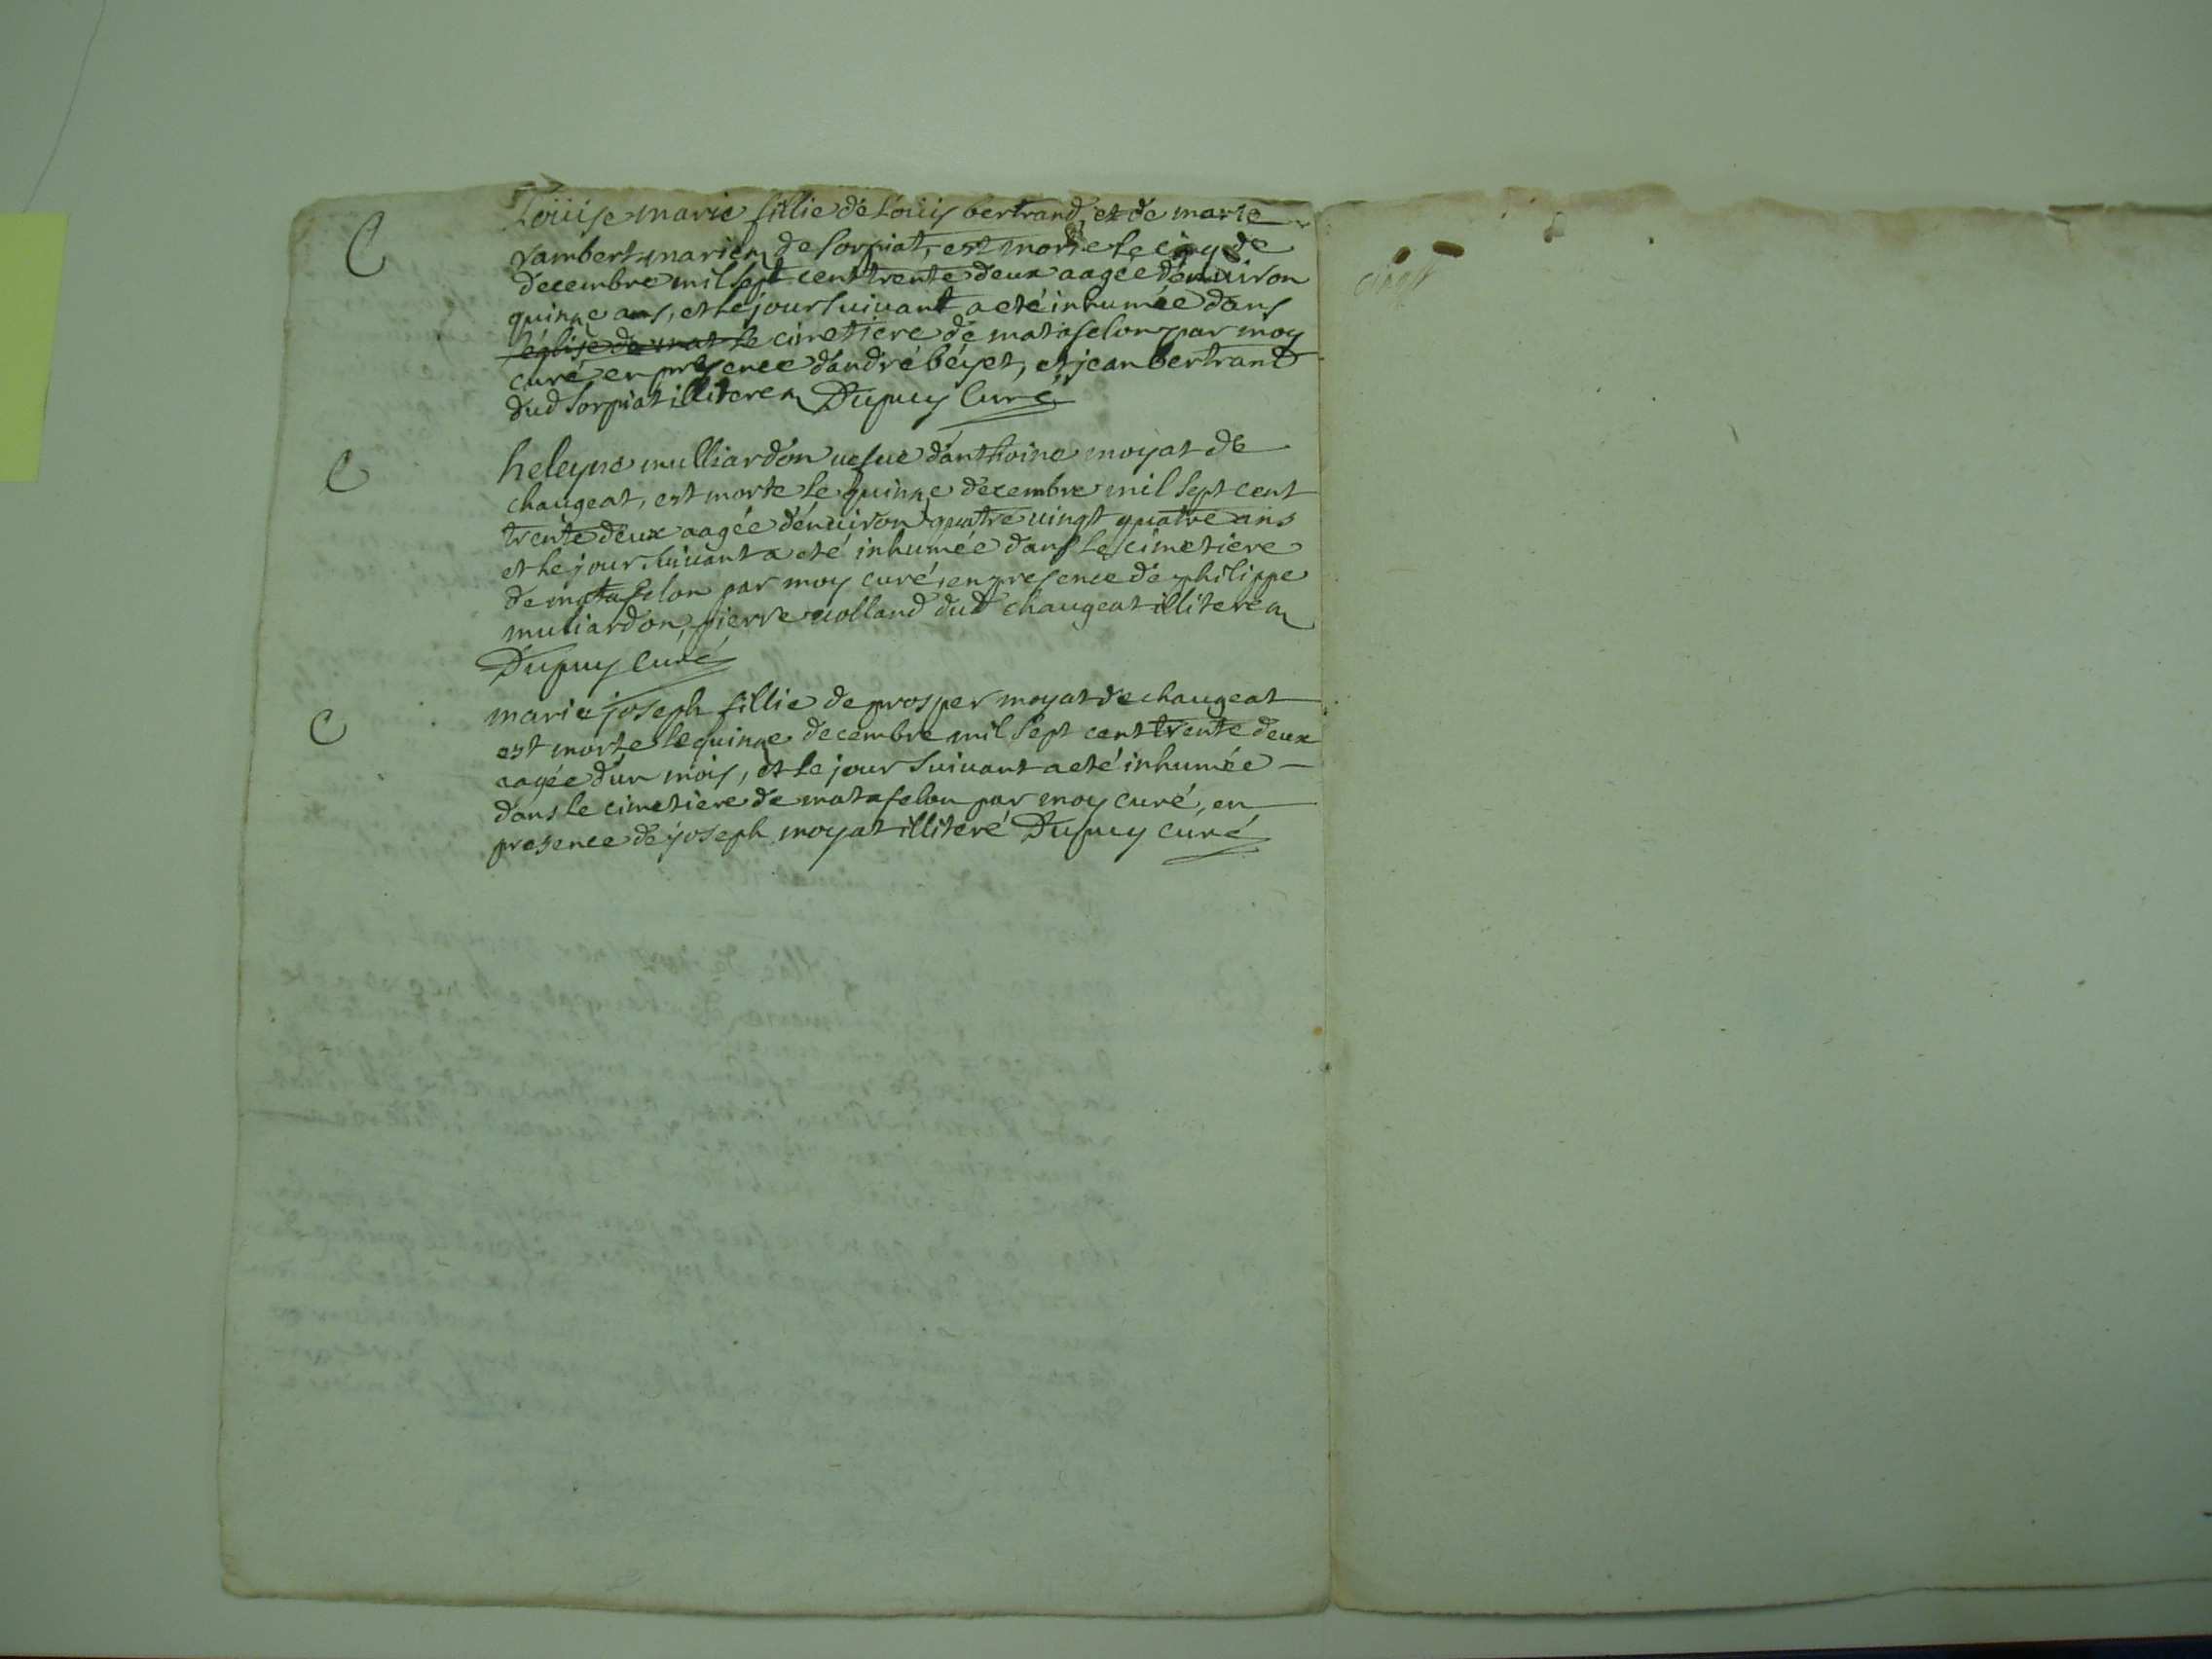 C
Loüise marie fillie de Loüis bertrand, et de marie
rambert mariez de sorpiat, est morte le cinq de
decembre mil sept cent trente deux aagée d'enuiron
quinze ans, et le jour suiuant a eté inhumée dans
l'église de mat le cimetiere de matafelon par moy
curé en presence d'andré béÿet, et jean bertrand
dud sorpiat illiterez Dupuy Curé
C
heleyne mulliardon uefue d'anthoine moyat de
chaugeat, est morte le quinze decembre mil sept cent
trente deux aagée d'enuiron quatre uingt quatre ans
et le jour suiuant a eté inhumée dans le cimetiere
de matafelon par moy curé, en presence de philippe
muliardon, pierre uolland dud chaugeat illiterez
Dupuy Curé
C
marie joseph fillie de prosper moyat de chaugeat
est morte le quinze decembre mil sept cent trente deux
aagée d'un mois, et le jour suiuant a eté inhumée
dans le cimetiere de matafelon par moy curé, en
presence de joseph moyat illiteré Dupuy curé